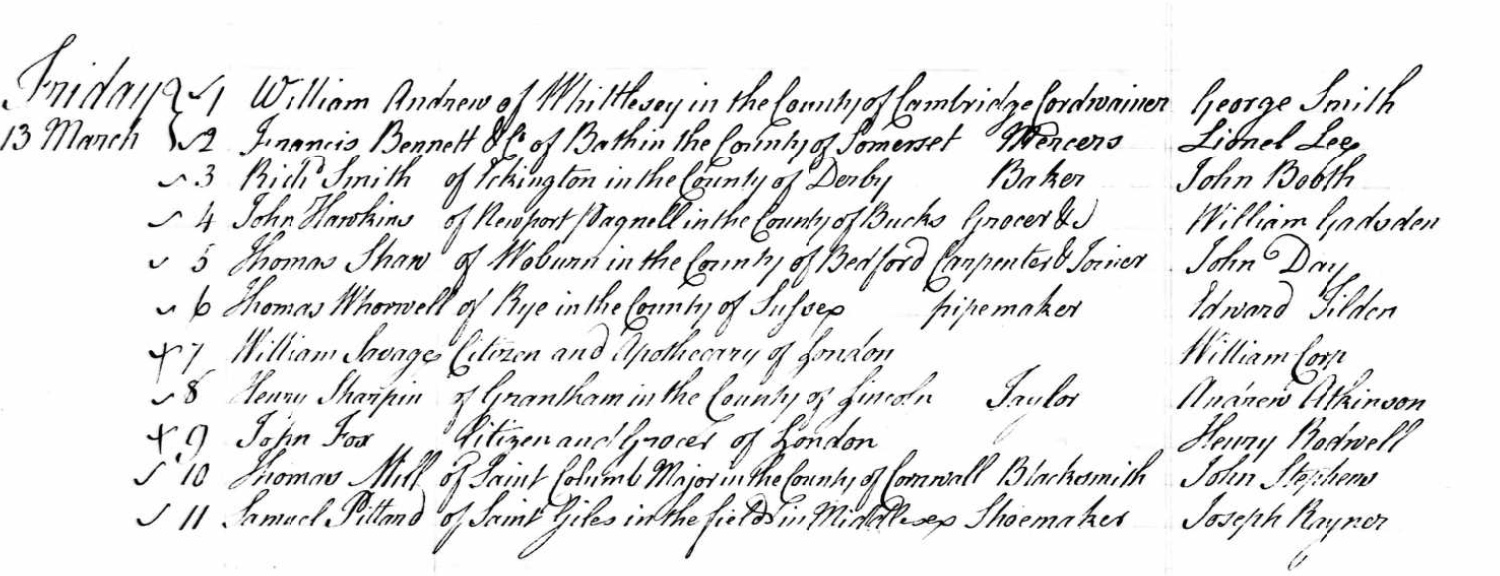 Friday } ✓ 1 William Andrew of Whittlesey in the County of Cambridge Cordwainer George Smith
13 March } ✓ 2 Francis Bennett & Co of Bath in the County of Somerset Mercers Lionel Lee
✓ 3 Richd Smith of Eckington in the County of Derby Baker John Booth
✓ 4 John Hawkins of Newport Pagnell in the County of Bucks Grocer &c William Gadsden
✓ 5 Thomas Shaw of Woburn in the County of Bedford Carpenter & Joiner John Day
✓ 6 Thomas Whorwell of Rye in the County of Sussex pipemaker Edward Tilden
✗ 7 William Savage Citizen and Apothecary of London William Corp
✓ 8 Henry Sharpin of Grantham in the County of Lincoln Taylor Andrew Atkinson
✗ 9 John Fox Citizen and Grocer of London Henry Rodwell
✓ 10 Thomas Mill of Saint Columb Major in the County of Cornwall Blacksmith John Stephens
✓ 11 Samuel Pittard of Saint Giles in the fields in Middlesex Shoemaker Joseph Rayner